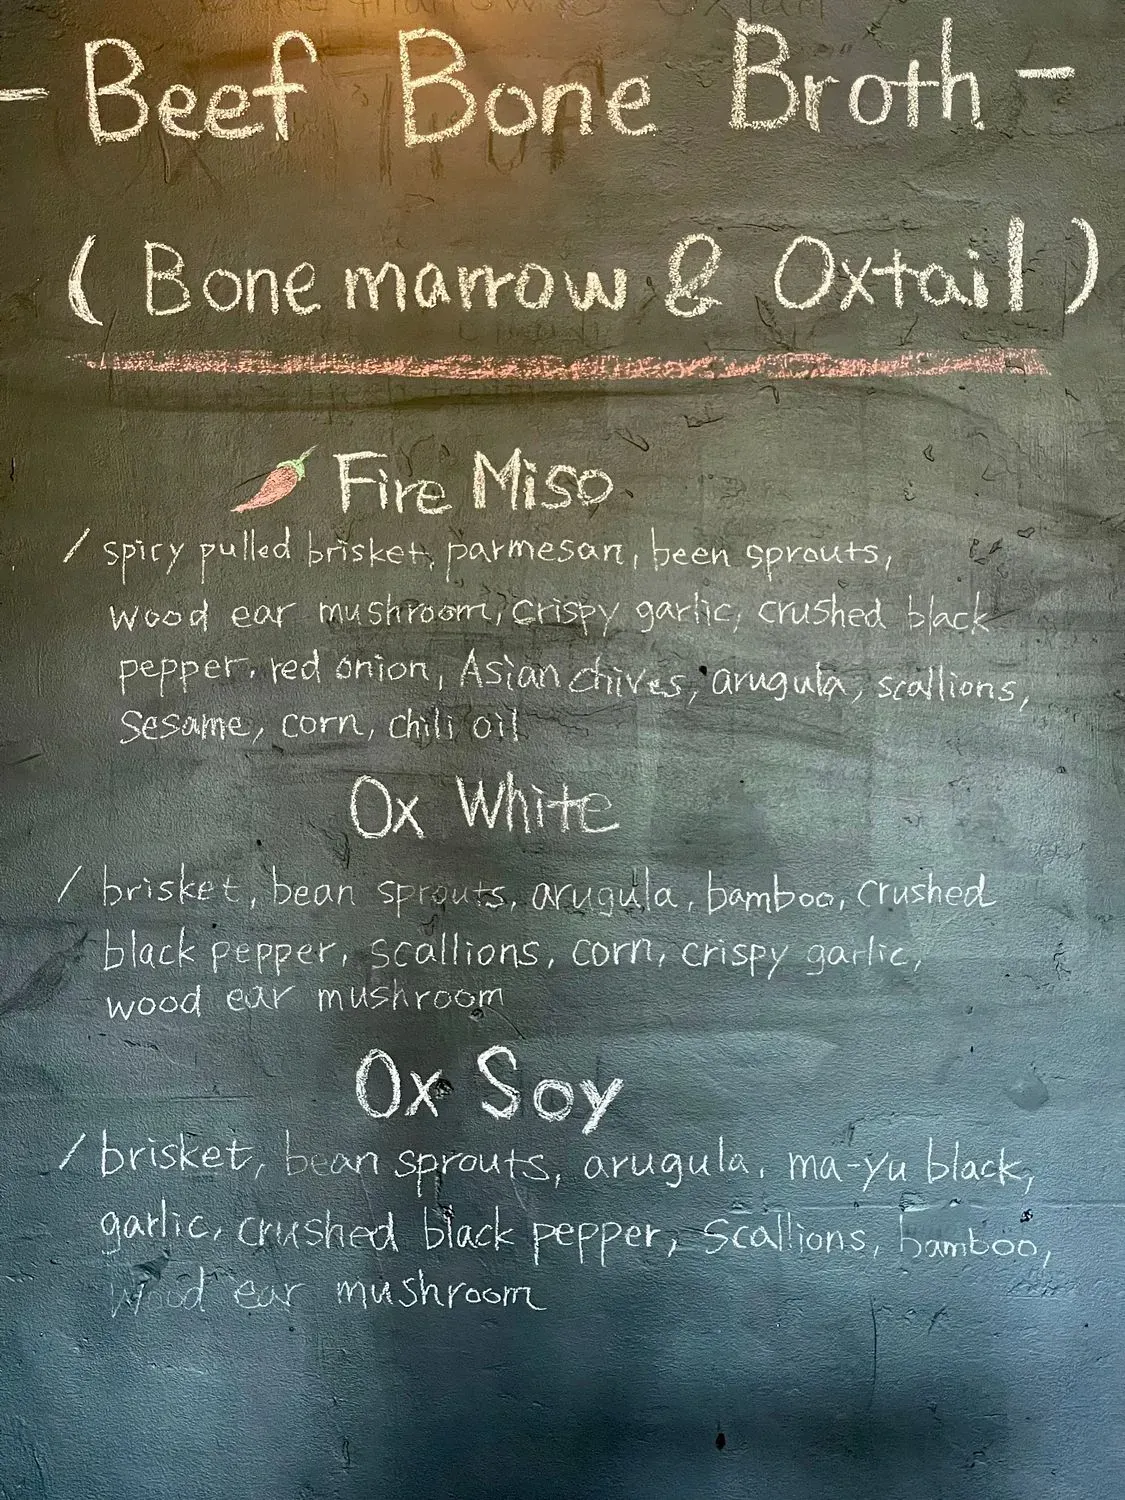 - Beef Bone Broth -
( Bone marrow & Oxtail )
Fire Miso
/ spicy pulled brisket, parmesan, been sprouts,
wood ear mushroom, crispy garlic, crushed black
pepper, red onion, Asian chives, arugula, scallions,
sesame, corn, chili oil
Ox White
/ brisket, bean sprouts, arugula, bamboo, crushed
black pepper, scallions, corn, crispy garlic,
wood ear mushroom
Ox Soy
/ brisket, bean sprouts, arugula, ma-yu black,
garlic, crushed black pepper, scallions, bamboo,
wood ear mushroom